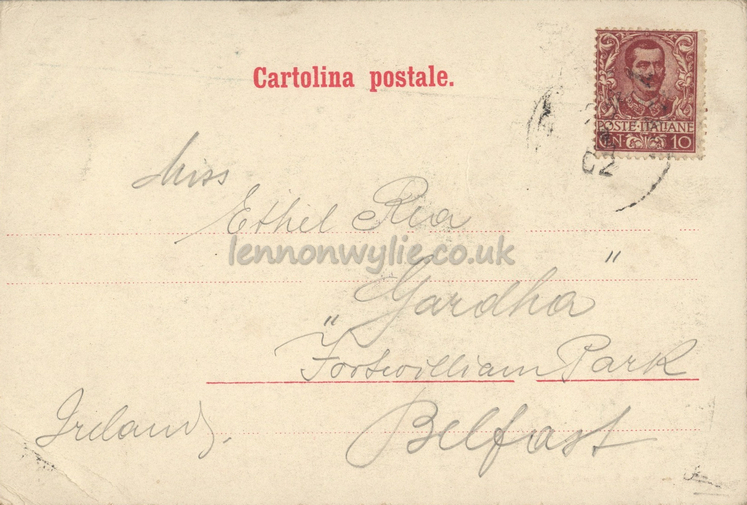 Cartolina postale.
POSTE·ITALIANE
CN 10
02
Miss
Ethel Rea
lennonwylie.co.uk
"Gardha"
Fortwilliam Park
Belfast
Ireland.